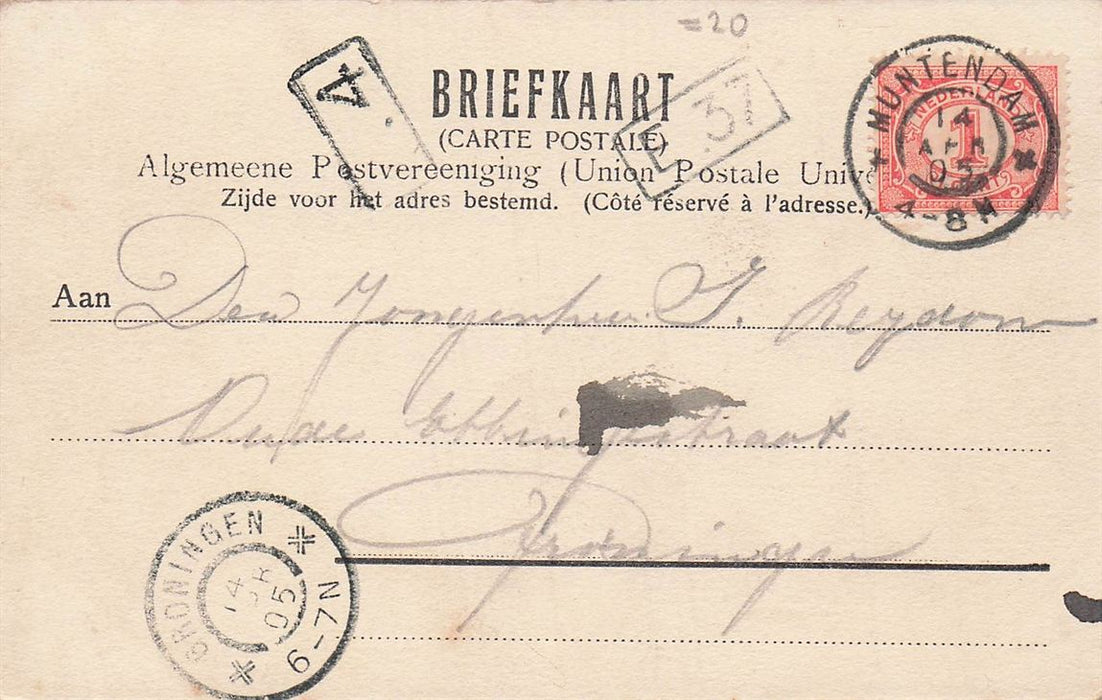 =20
4
BRIEFKAART
(CARTE POSTALE)
37
Algemeene Postvereeniging (Union Postale Unive
Zijde voor het adres bestemd. (Côté réservé à l'adresse.)
NEDERLAND
1
MUNTENDAM
14
APR
05
4-8 N
Aan Den Jongenheer J. Reydom
Oude Ebbingestraat
Groningen
GRONINGEN
14
APR
05
6-7N